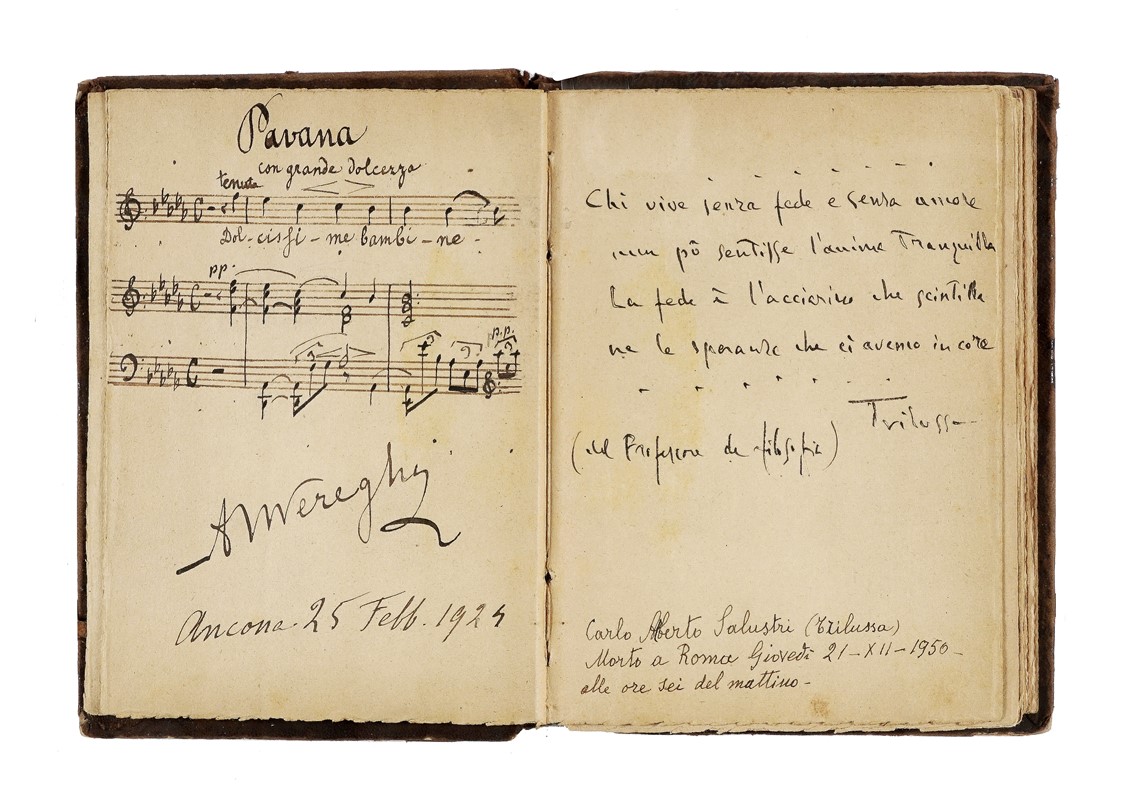 Pavana
con grande dolcezza
tenuta
Dol-cissi-me bambi-ne-
pp.
3
3
3
p.p.
Ancona. 25 Febb. 192
Chi vive senza fede e senza amore
nun pô sentisse l'anima tranquilla
La fede è l'acciarino che scintilla
ne le speranze che ci avemo in core
Trilussa
(del Professore de filosofia)
Carlo Alberto Salustri (Trilussa)
Morto a Roma Giovedì 21-XII-1950-
alle ore sei del mattino-